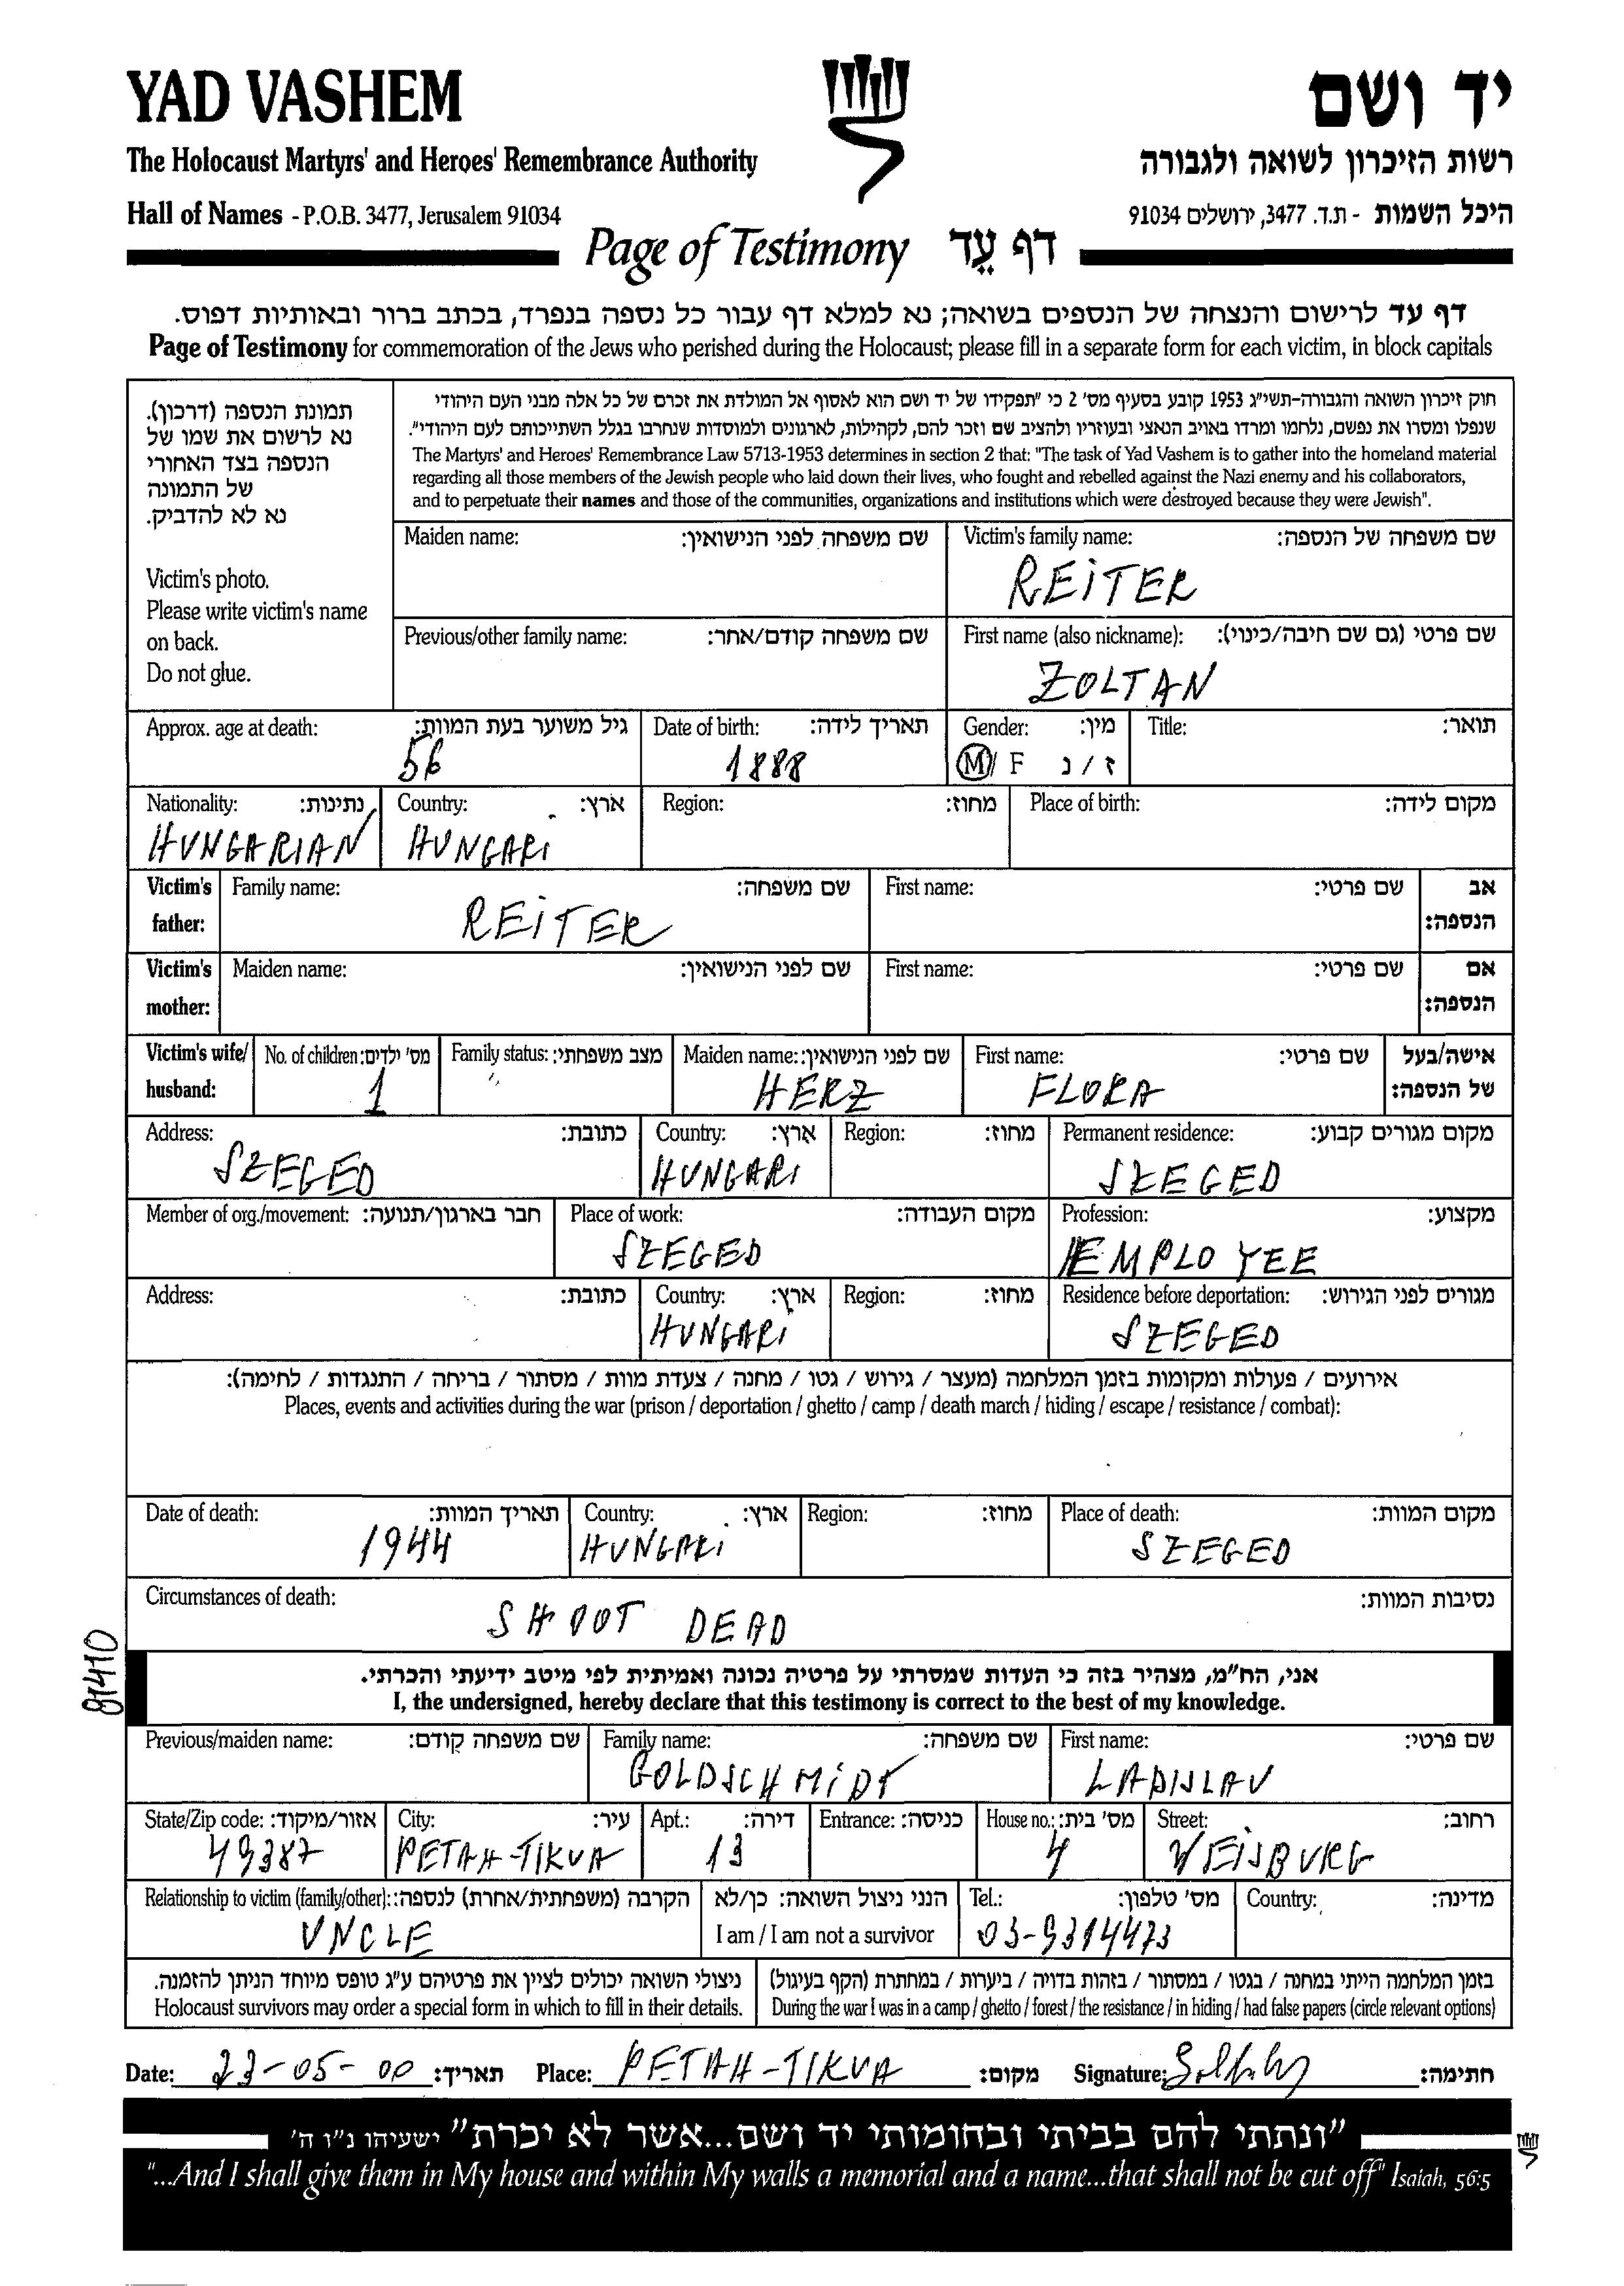 YAD VASHEM
יד ושם
The Holocaust Martyrs' and Heroes' Remembrance Authority
רשות הזיכרון לשואה ולגבורה
Hall of Names - P.O.B. 3477, Jerusalem 91034
היכל השמות - ת.ד. 3477, ירושלים 91034
Page of Testimony דף עֵד
דף עד לרישום והנצחה של הנספים בשואה; נא למלא דף עבור כל נספה בנפרד, בכתב ברור ובאותיות דפוס.
Page of Testimony for commemoration of the Jews who perished during the Holocaust; please fill in a separate form for each victim, in block capitals
תמונת הנספה (דרכון).
נא לרשום את שמו של
הנספה בצד האחורי
של התמונה
נא לא להדביק.
Victim's photo.
Please write victim's name
on back.
Do not glue.
חוק זיכרון השואה והגבורה-תשי"ג 1953 קובע בסעיף מס' 2 כי "תפקידו של יד ושם הוא לאסוף אל המולדת את זכרם של כל אלה מבני העם היהודי
שנפלו ומסרו את נפשם, נלחמו ומרדו באויב הנאצי ובעוזריו ולהציב שם וזכר להם, לקהילות, לארגונים ולמוסדות שנחרבו בגלל השתייכותם לעם היהודי".
The Martyrs' and Heroes' Remembrance Law 5713-1953 determines in section 2 that: "The task of Yad Vashem is to gather into the homeland material
regarding all those members of the Jewish people who laid down their lives, who fought and rebelled against the Nazi enemy and his collaborators,
and to perpetuate their names and those of the communities, organizations and institutions which were destroyed because they were Jewish".
Maiden name: שם משפחה לפני הנישואין:
Victim's family name: שם משפחה של הנספה:
REITER
Previous/other family name: שם משפחה קודם/אחר:
First name (also nickname): שם פרטי (גם שם חיבה/כינוי):
ZOLTAN
Approx. age at death: גיל משוער בעת המוות:
56
Date of birth: תאריך לידה:
1888
Gender: מין:
M / F ז / נ
Title: תואר:
Nationality: נתינות:
HUNGARIAN
Country: ארץ:
HUNGARI
Region: מחוז:
Place of birth: מקום לידה:
Victim's father:
Family name: שם משפחה:
REITER
First name: שם פרטי:
אב הנספה:
Victim's mother:
Maiden name: שם לפני הנישואין:
First name: שם פרטי:
אם הנספה:
Victim's wife/ husband:
No. of children: מס' ילדים:
1
Family status: מצב משפחתי:
Maiden name: שם לפני הנישואין:
HERZ
First name: שם פרטי:
FLORA
אישה/בעל של הנספה:
Address: כתובת:
SZEGED
Country: ארץ:
HUNGARI
Region: מחוז:
Permanent residence: מקום מגורים קבוע:
SZEGED
Member of org./movement: חבר בארגון/תנועה:
Place of work: מקום העבודה:
SZEGED
Profession: מקצוע:
EMPLOYEE
Address: כתובת:
Country: ארץ:
HUNGARI
Region: מחוז:
Residence before deportation: מגורים לפני הגירוש:
SZEGED
אירועים / פעולות ומקומות בזמן המלחמה (מעצר / גירוש / גטו / מחנה / צעדת מוות / מסתור / בריחה / התנגדות / לחימה):
Places, events and activities during the war (prison / deportation / ghetto / camp / death march / hiding / escape / resistance / combat):
Date of death: תאריך המוות:
1944
Country: ארץ:
HUNGARI
Region: מחוז:
Place of death: מקום המוות:
SZEGED
Circumstances of death: נסיבות המוות:
SHOOT DEAD
81410
אני, הח"מ, מצהיר בזה כי העדות שמסרתי על פרטיה נכונה ואמיתית לפי מיטב ידיעתי והכרתי.
I, the undersigned, hereby declare that this testimony is correct to the best of my knowledge.
Previous/maiden name: שם משפחה קודם:
Family name: שם משפחה:
GOLDSCHMIDT
First name: שם פרטי:
LADISLAV
State/Zip code: אזור/מיקוד:
49387
City: עיר:
PETAH-TIKVA
Apt.: דירה:
13
Entrance: כניסה:
House no.: מס' בית:
4
Street: רחוב:
WEISBURG
Relationship to victim (family/other): הקרבה (משפחתית/אחרת) לנספה:
UNCLE
הנני ניצול השואה: כן/לא
I am / I am not a survivor
Tel.: מס' טלפון:
03-9314473
Country: מדינה:
ניצולי השואה יכולים לציין את פרטיהם ע"ג טופס מיוחד הניתן להזמנה.
Holocaust survivors may order a special form in which to fill in their details.
בזמן המלחמה הייתי במחנה / בגטו / במסתור / בזהות בדויה / ביערות / במחתרת (הקף בעיגול)
During the war I was in a camp / ghetto / forest / the resistance / in hiding / had false papers (circle relevant options)
Date: 23-05-00 תאריך: Place: PETAH-TIKVA מקום: Signature: חתימה:
"ונתתי להם בביתי ובחומותי יד ושם...אשר לא יכרת" ישעיהו נ"ו ה'
"...And I shall give them in My house and within My walls a memorial and a name...that shall not be cut off" Isaiah, 56:5